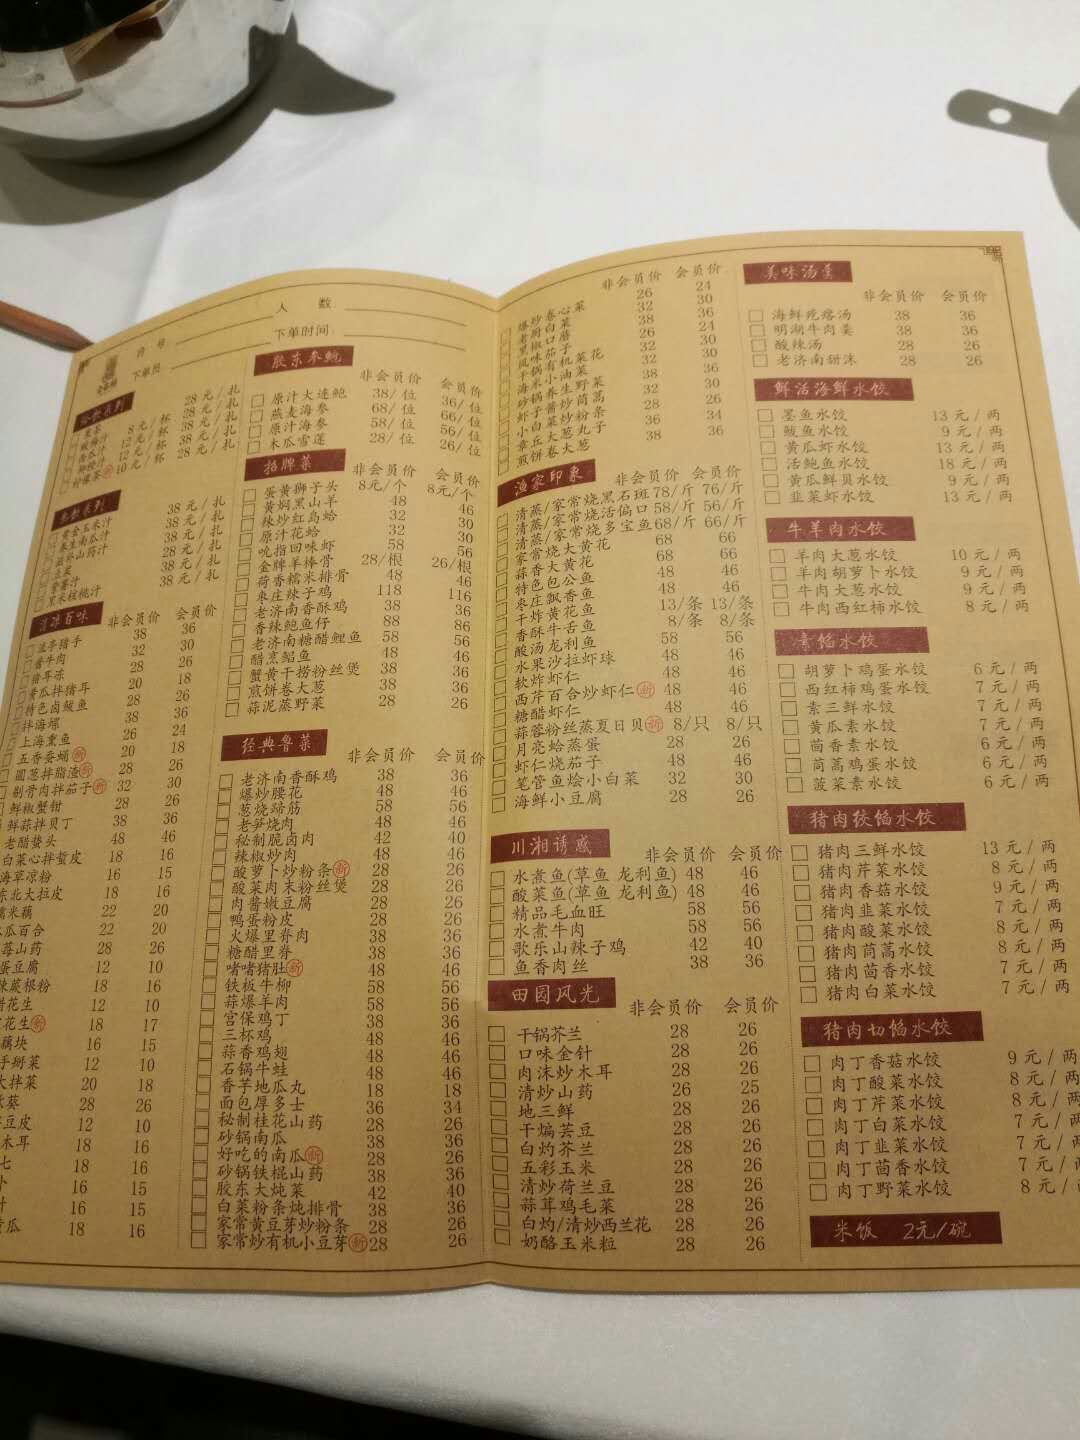 台号
人 数
下单员
下单时间
冷饮系列
28元/扎
8元/杯 28元/扎
12元/杯 38元/扎
12元/杯 38元/扎
10元/杯 28元/扎
热饮系列
黄金玉米汁 38元/扎
38元/扎
38元/扎
28元/扎
38元/扎
黑米核桃汁 38元/扎
凉百味
非会员价 会员价
猪手 38 36
酱牛肉 32 30
猪耳冻 28 26
黄瓜拌猪耳 20 18
特色卤鲅鱼 28 26
拌海螺 38 36
上海熏鱼 26 24
五香蚕蛹 新 20 18
圆葱拌脂渣 新 28 26
剔骨肉拌茄子 新 32 30
鲜椒蟹钳 28 26
鲜蒜拌贝丁 38 36
老醋蛰头 48 46
白菜心拌蜇皮 18 16
海草凉粉 16 15
东北大拉皮 18 16
糯米藕 22 20
瓜百合 22 20
莓山药 28 26
蛋豆腐 12 10
辣蕨根粉 18 16
醋花生 12 10
花生 新 18 17
藕块 16 15
手掰菜 12 10
大拌菜 20 18
葵 28 26
豆皮 12 10
木耳 18 16
七 18 16
16 15
16 15
黄瓜 18 16
胶东参鲍
非会员价 会员价
原汁大连鲍 38/位 36/位
燕麦海参 68/位 66/位
原汁海参 58/位 56/位
木瓜雪莲 28/位 26/位
招牌菜
非会员价 会员价
蛋黄狮子头 8元/个 8元/个
黄焖黑山羊 48 46
辣炒红岛蛤 32 30
原汁花蛤 32 30
吮指回味虾 58 56
金牌羊棒骨 28/根 26/根
荷香糯米排骨 48 46
枣庄辣子鸡 118 116
老济南香酥鸡 38 36
香辣鲍鱼仔 88 86
老济南糖醋鲤鱼 58 56
醋烹鲳鱼 48 46
蟹黄干捞粉丝煲 38 36
煎饼卷大葱 38 36
蒜泥蒸野菜 28 26
经典鲁菜
非会员价 会员价
老济南香酥鸡 38 36
爆炒腰花 48 46
葱烧蹄筋 58 56
老笋烧肉 48 46
秘制脆卤肉 42 40
辣椒炒肉 48 46
酸萝卜炒粉条 新 28 26
酸菜肉末粉丝煲 28 26
肉酱嫩豆腐 28 26
鸭蛋粉皮 28 26
火爆里脊肉 38 36
糖醋里脊 38 36
嗜嗜猪肚 新 48 46
铁板牛柳 58 56
蒜爆羊肉 58 56
宫保鸡丁 38 36
三杯鸡 48 46
蒜香鸡翅 48 46
石锅牛蛙 48 46
香芋地瓜丸 18 18
面包厚多士 36 34
秘制桂花山药 28 26
砂锅南瓜 38 36
好吃的南瓜 新 28 26
砂锅铁棍山药 38 36
胶东大炖菜 42 40
白菜粉条炖排骨 38 36
家常黄豆芽炒粉条 28 26
家常炒有机小豆芽 新 28 26
非会员价 会员价
爆炒卷心菜 26 24
老厨白菜 32 30
黑椒口蘑 38 36
风味茄子 26 24
干锅有机菜花 32 30
海米小油菜 38 36
砂锅养生野菜 32 30
虾子酱炒茼蒿 28 26
小白菜炒粉条 36 34
章丘大葱丸子 38 36
煎饼卷大葱
渔家印象
非会员价 会员价
清蒸/家常烧黑石斑 78/斤 76/斤
清蒸/家常烧活偏口 58/斤 56/斤
清蒸/家常烧多宝鱼 68/斤 66/斤
家常烧大黄花 68 66
蒜香大黄花 68 66
特色包公鱼 48 46
枣庄飘香鱼 48 46
干炸黄花鱼 13/条 13/条
香酥牛舌鱼 8/条 8/条
酸汤龙利鱼 58 56
水果沙拉虾球 48 46
软炸虾仁 48 46
西芹百合炒虾仁 新 48 46
糖醋虾仁 48 46
蒜蓉粉丝蒸夏日贝 新 8/只 8/只
月亮蛤蒸蛋 28 26
虾仁烧茄子 48 46
笔管鱼烩小白菜 32 30
海鲜小豆腐 28 26
川湘诱惑
非会员价 会员价
水煮鱼(草鱼 龙利鱼) 48 46
酸菜鱼(草鱼 龙利鱼) 48 46
精品毛血旺 58 56
水煮牛肉 58 56
歌乐山辣子鸡 42 40
鱼香肉丝 38 36
田园风光
非会员价 会员价
干锅芥兰 28 26
口味金针 28 26
肉沫炒木耳 28 26
清炒山药 26 25
地三鲜 28 26
干煸芸豆 28 26
白灼芥兰 28 26
五彩玉米 28 26
清炒荷兰豆 28 26
蒜茸鸡毛菜 28 26
白灼/清炒西兰花 28 26
奶酪玉米粒 28 26
美味汤羹
非会员价 会员价
海鲜疙瘩汤 38 36
明湖牛肉羹 38 36
酸辣汤 28 26
老济南甜沫 28 26
鲜活海鲜水饺
墨鱼水饺 13元/两
鲅鱼水饺 9元/两
黄瓜虾水饺 13元/两
活鲍鱼水饺 18元/两
黄瓜鲜贝水饺 9元/两
韭菜虾水饺 13元/两
牛羊肉水饺
羊肉大葱水饺 10元/两
羊肉胡萝卜水饺 9元/两
牛肉大葱水饺 9元/两
牛肉西红柿水饺 8元/两
素馅水饺
胡萝卜鸡蛋水饺 6元/两
西红柿鸡蛋水饺 7元/两
素三鲜水饺 7元/两
黄瓜素水饺 7元/两
茴香素水饺 6元/两
茼蒿鸡蛋水饺 6元/两
菠菜素水饺 6元/两
猪肉绞馅水饺
猪肉三鲜水饺 13元/两
猪肉芹菜水饺 8元/两
猪肉香菇水饺 9元/两
猪肉韭菜水饺 7元/两
猪肉酸菜水饺 8元/两
猪肉茼蒿水饺 8元/两
猪肉茴香水饺 7元/两
猪肉白菜水饺 7元/两
猪肉切馅水饺
肉丁香菇水饺 9元/两
肉丁酸菜水饺 8元/两
肉丁芹菜水饺 8元/两
肉丁白菜水饺 7元/两
肉丁韭菜水饺 7元/两
肉丁茴香水饺 7元/两
肉丁野菜水饺 8元/两
米饭 2元/碗